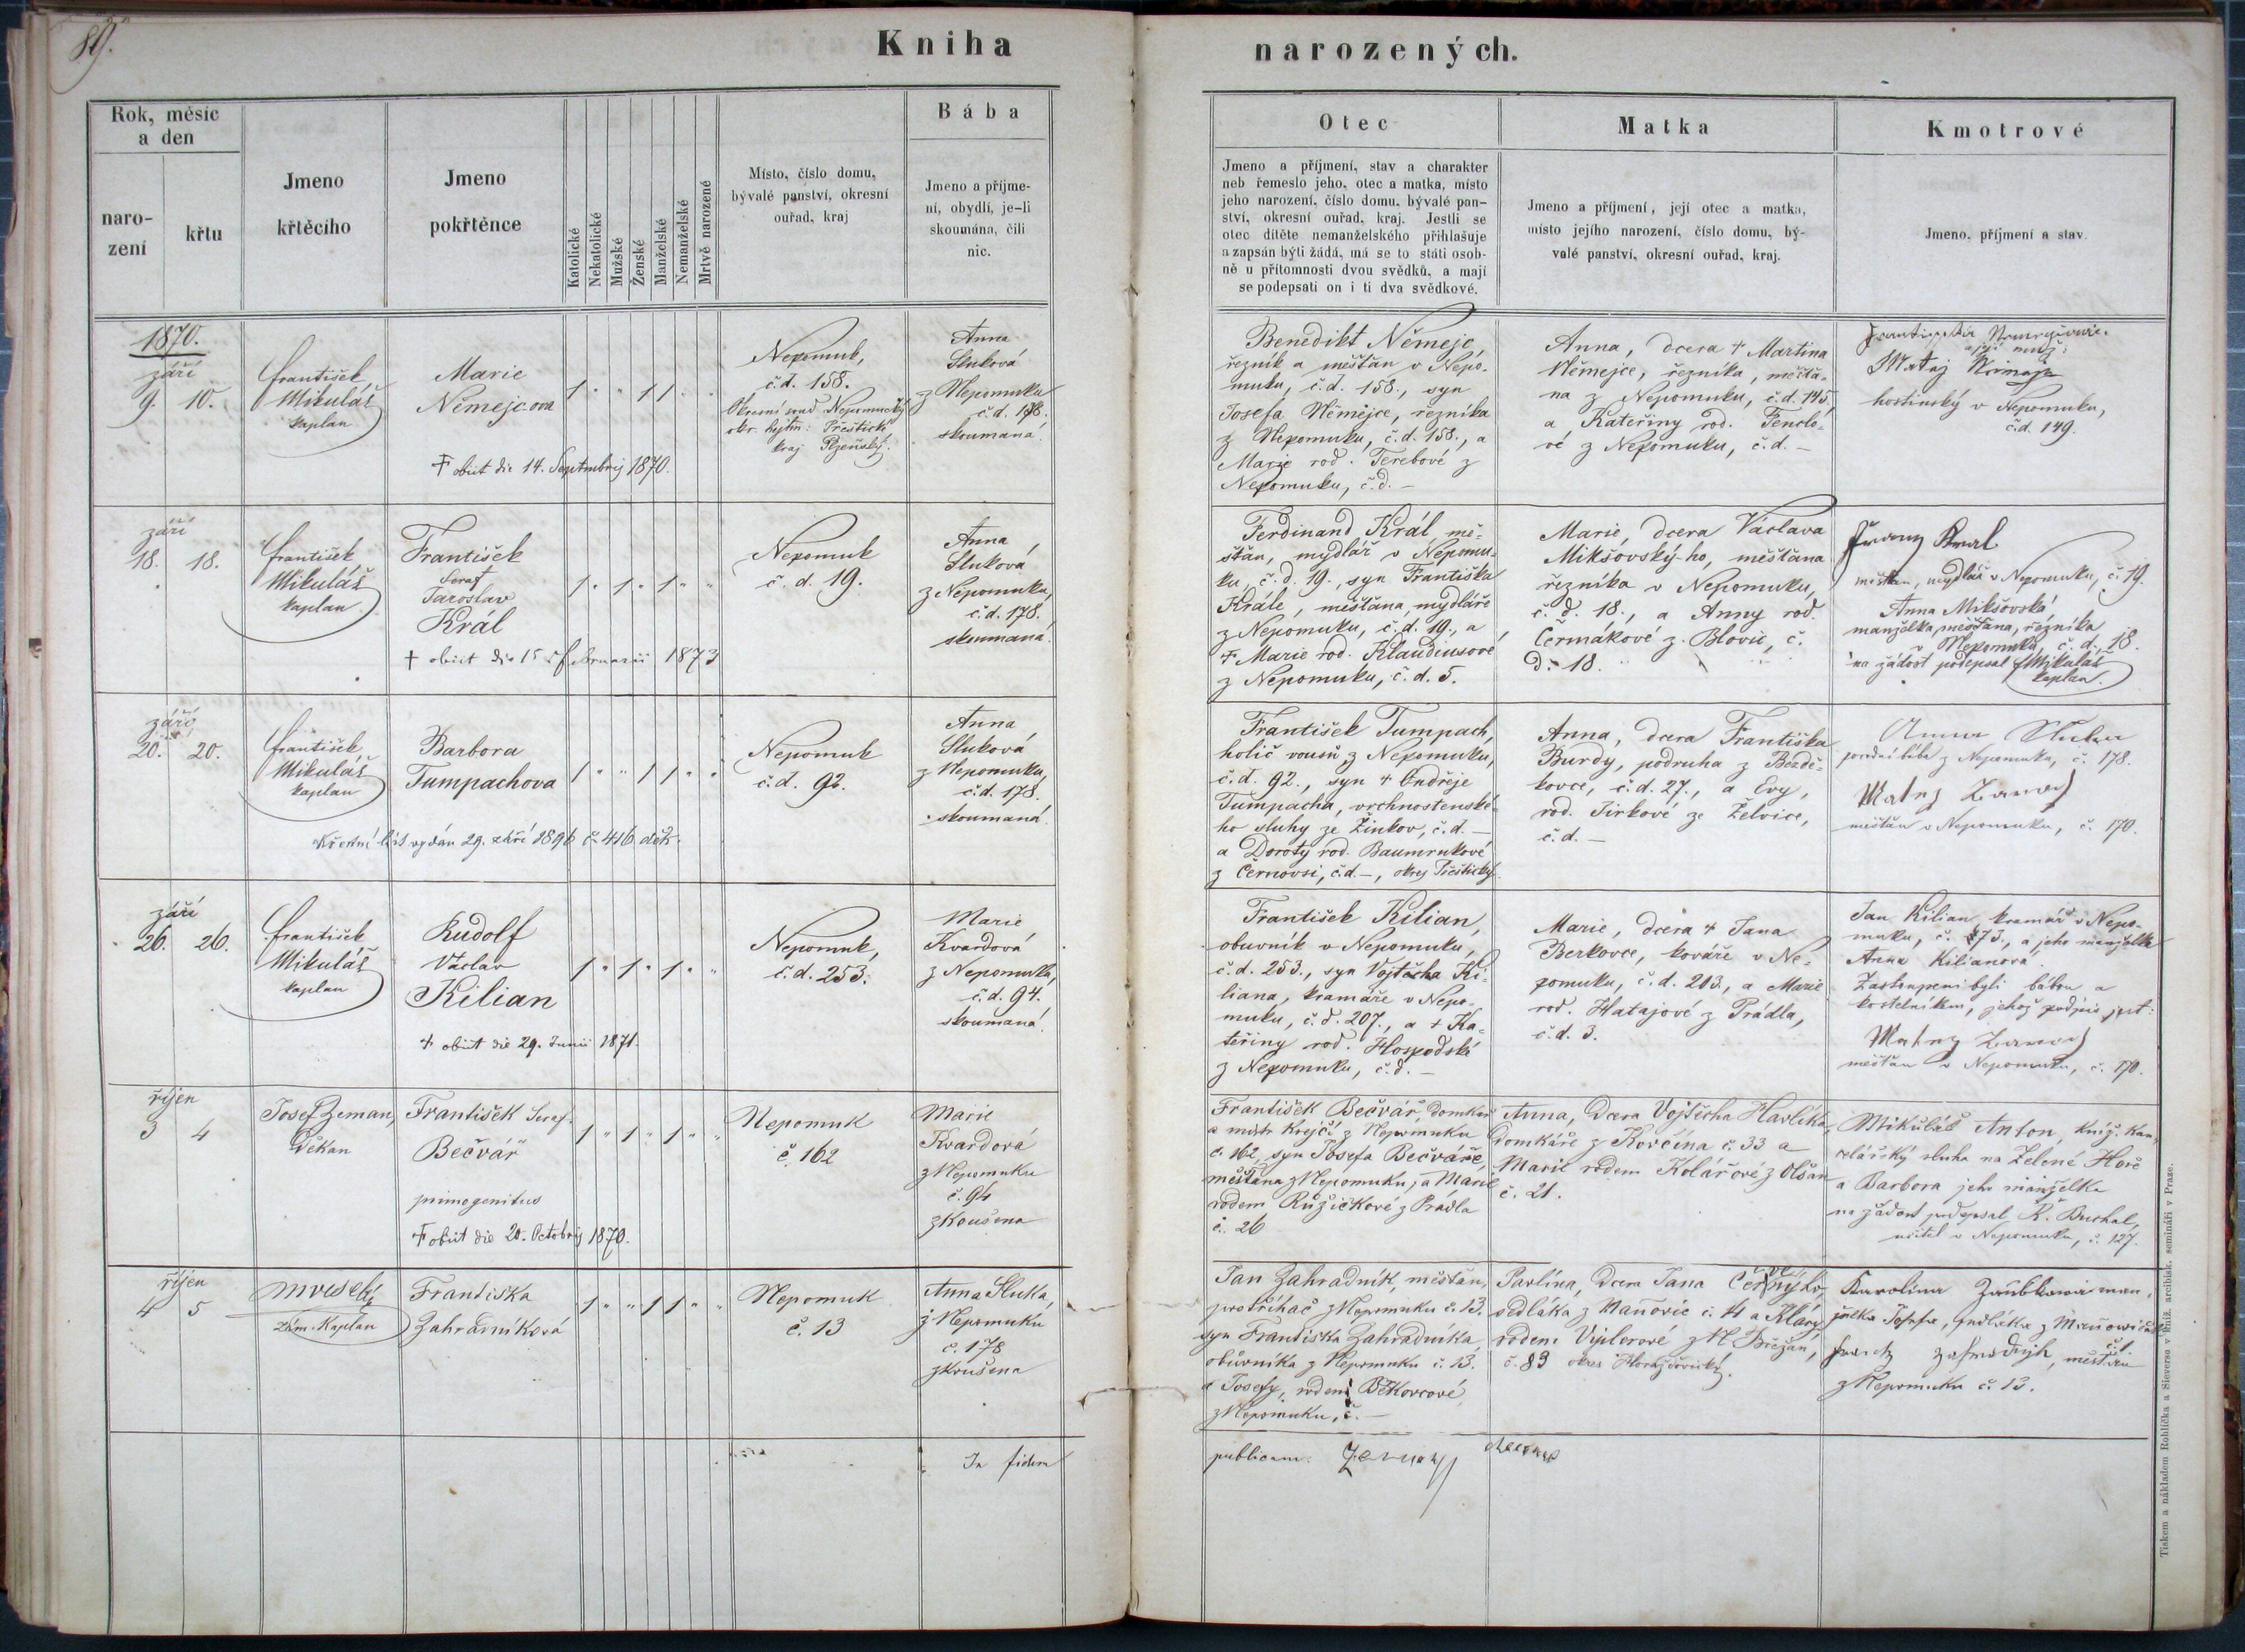 89.
Kniha narozených.
Rok, měsíc
a den
naro-
zení
křtu
Jmeno
křtěcího
Jmeno
pokřtěnce
Katolické
Nekatolické
Mužské
Ženské
Manželské
Nemanželské
Mrtvě narozené
Místo, číslo domu,
bývalé panství, okresní
ouřad, kraj
Bába
Jmeno a příjme-
ní, obydlí, je-li
skoumána, čili
nic.
Otec
Jmeno a příjmení, stav a charakter
neb řemeslo jeho, otec a matka, místo
jeho narození, číslo domu, bývalé pan-
ství, okresní ouřad, kraj. Jestli se
otec dítěte nemanželského přihlašuje
a zapsán býti žádá, má se to státi osob-
ně u přítomnosti dvou svědků, a mají
se podepsati on i ti dva svědkové.
Matka
Jmeno a příjmení, její otec a matka,
místo jejího narození, číslo domu, bý-
valé panství, okresní ouřad, kraj.
Kmotrové
Jmeno, příjmení a stav.
1870.
září
9. 10.
František
Mikuláš
kaplan
Marie
Němejcova
1 " " 1 1 " "
† obiit die 14. Septembrij 1870.
Nepomuk,
č.d. 158.
Okresní soud Nepomucký
okr. hejtm: Přeštické
kraj Plzeňský.
Anna
Sluková
z Nepomuku
č.d. 178.
skoumaná.
Benedikt Němejc,
řezník a měšťan v Nepo-
muku, č.d. 158., syn
Josefa Němejce, řezníka
z Nepomuku, č.d. 158., a
Marie rod. Terebové z
Nepomuku, č.d. —
Anna, dcera † Martina
Němejce, řezníka, měšťa-
na z Nepomuku, č.d. 145,
a Kateřiny rod. Fenclo-
vé z Nepomuku, č.d. —
a její muž:
Matej
hostinský v Nepomuku,
č.d. 149.
září
18. 18.
František
Mikuláš
kaplan
František
Seraf
Jaroslav
Král
1 " 1 " 1 " "
† obiit die 15 Februarii 1873
Nepomuk
č.d. 19.
Anna
Sluková
z Nepomuku,
č.d. 178.
skoumaná.
Ferdinand Král, mě-
šťan, mydlář v Nepomu-
ku, č.d. 19., syn Františka
Krále, měšťana, mydláře
z Nepomuku, č.d. 19., a
† Marie rod. Klaudiusové
z Nepomuku, č.d. 5.
Marie, dcera Václava
Mikšovský-ho, měšťana
řezníka v Nepomuku,
č.d. 18., a Anny rod.
Čermákové z Blovic, č.
d. 18.
Franz Kral
měšťan, mydlář v Nepomuku, č. 19.
Anna Mikšovská
manželka měšťana, řezníka
v Nepomuku, č.d. 18.
na žádost podepsal F Mikuláš
kaplan.
září
20. 20.
František
Mikuláš
kaplan
Barbora
Tumpachova
1 " " 1 1 " "
Křestní list vydán 29. září 1896 č 416 děk.
Nepomuk
č.d. 92.
Anna
Sluková
z Nepomuku,
č.d. 178.
skoumaná.
František Tumpach,
holič vousů z Nepomuku,
č.d. 92., syn † Ondřeje
Tumpacha, vrchnostenské-
ho sluhy ze Žinkov, č.d. —
a Doroty rod. Baumrukové
z Černovsi, č.d. —, okres Přeštický.
Anna, dcera Františka
Burdy, podruha z Bezdě-
kovce, č.d. 27., a Evy,
rod. Jirkové ze Želvice,
č.d. —
Anna Sluka
porodní bába z Nepomuku, č. 178.
Matej
měšťan v Nepomuku, č. 170.
září
26. 26.
František
Mikuláš
kaplan
Rudolf
Václav
Kilian
1 " 1 " 1 " "
† obiit die 29. Junii 1871.
Nepomuk,
č.d. 253.
Marie
Kvardová
z Nepomuku,
č.d. 94.
skoumaná.
František Kilian,
obuvník v Nepomuku,
č.d. 253., syn Vojtěcha Ki-
liana, kramáře v Nepo-
muku, č.d. 207., a † Ka-
teřiny rod. Hospodské
z Nepomuku, č.d. —
Marie, dcera † Jana
Berkovce, kováře v Ne-
pomuku, č.d. 213., a Marie
rod. Hatajové z Prádla,
č.d. 3.
Jan Kilian, kramář v Nepo-
muku, č. 173., a jeho manželka
Anna Kilianová.
Zastoupeni byli bábou a
kostelníkem, jehož podpis jest:
Matej
měšťan v Nepomuku, č. 170.
říjen
3 4
Josef Zeman,
děkan
František Seraf.
Bečvář
primogenitus
1 " 1 " 1 " "
† obiit die 20. Octobrij 1870.
Nepomuk
č. 162
Marie
Kvardová
z Nepomuku
č. 94
zkoušena
František Bečvář, domkář
a mistr krejčí z Nepomuku
č. 162, syn Josefa Bečváře,
měšťana z Nepomuku, a Marie
rodem Růžičkové z Prádla
č. 26
Anna, dcera Vojtěcha Havlíka,
domkáře z Kovčína č. 33 a
Marie rodem Kolářové z Olšan
č. 21.
Mikuláš Anton, kníž. kan-
celářský sluha na Zelené Hoře
a Barbora jeho manželka
na žádost podepsal
učitel v Nepomuku, č. 127.
říjen
4 5
zám. kaplan
Františka
Zahradníková
1 " " 1 1 " "
Nepomuk
č. 13
Anna Sluka,
z Nepomuku
č. 178
zkoušena
Jan Zahradník, měšťan,
z Nepomuku č. 13.
syn Františka Zahradníka,
obuvníka z Nepomuku č. 13.
a Josefy, rodem Běkovcové,
z Nepomuku, č. —
Pavlína, dcera Jana
sedláka z Maňovic č. 4 a Kláry
rodem
č. 83 okres Horažďovický.
Karolina man-
želka Josefa, sedláka z
č. 1.
měšťan
z Nepomuku č. 13.
In fidem
publicam: Zeman
Tiskem a nákladem Rohlíčka a Sieverse v kníž. arcibisk. semináři v Praze.